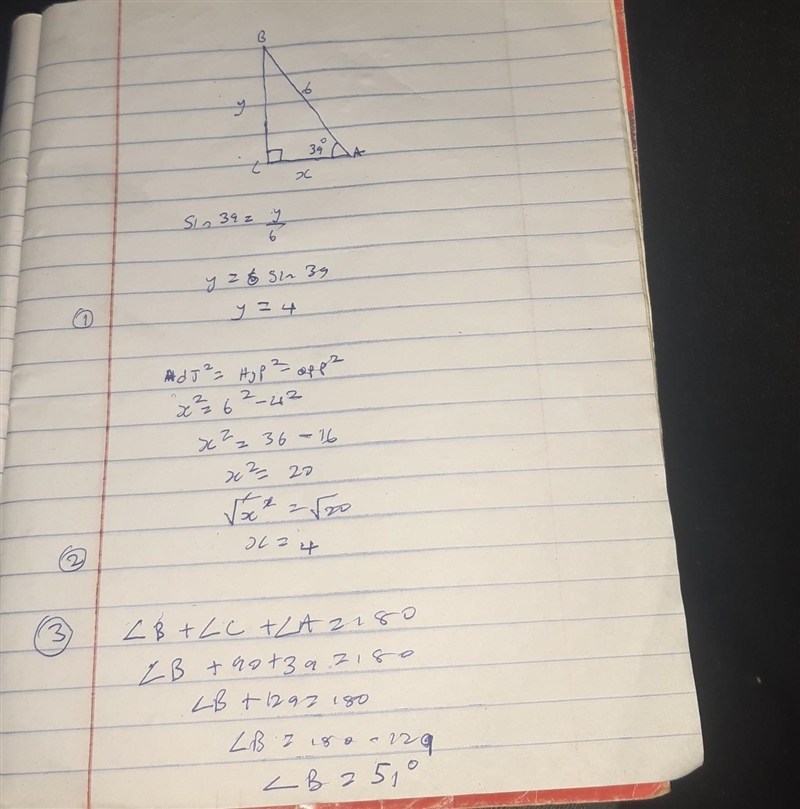 B
6
y
39°
C
A
x
Sin 39 = y/6
y = 6 Sin 39
y = 4
①
AdJ² = Hyp² - opp²
x² = 6² - 4²
x² = 36 - 16
x² = 20
√x² = √20
x = 4
②
③ ∠B + ∠C + ∠A = 180
∠B + 90 + 39 = 180
∠B + 129 = 180
∠B = 180 - 129
∠B = 51°